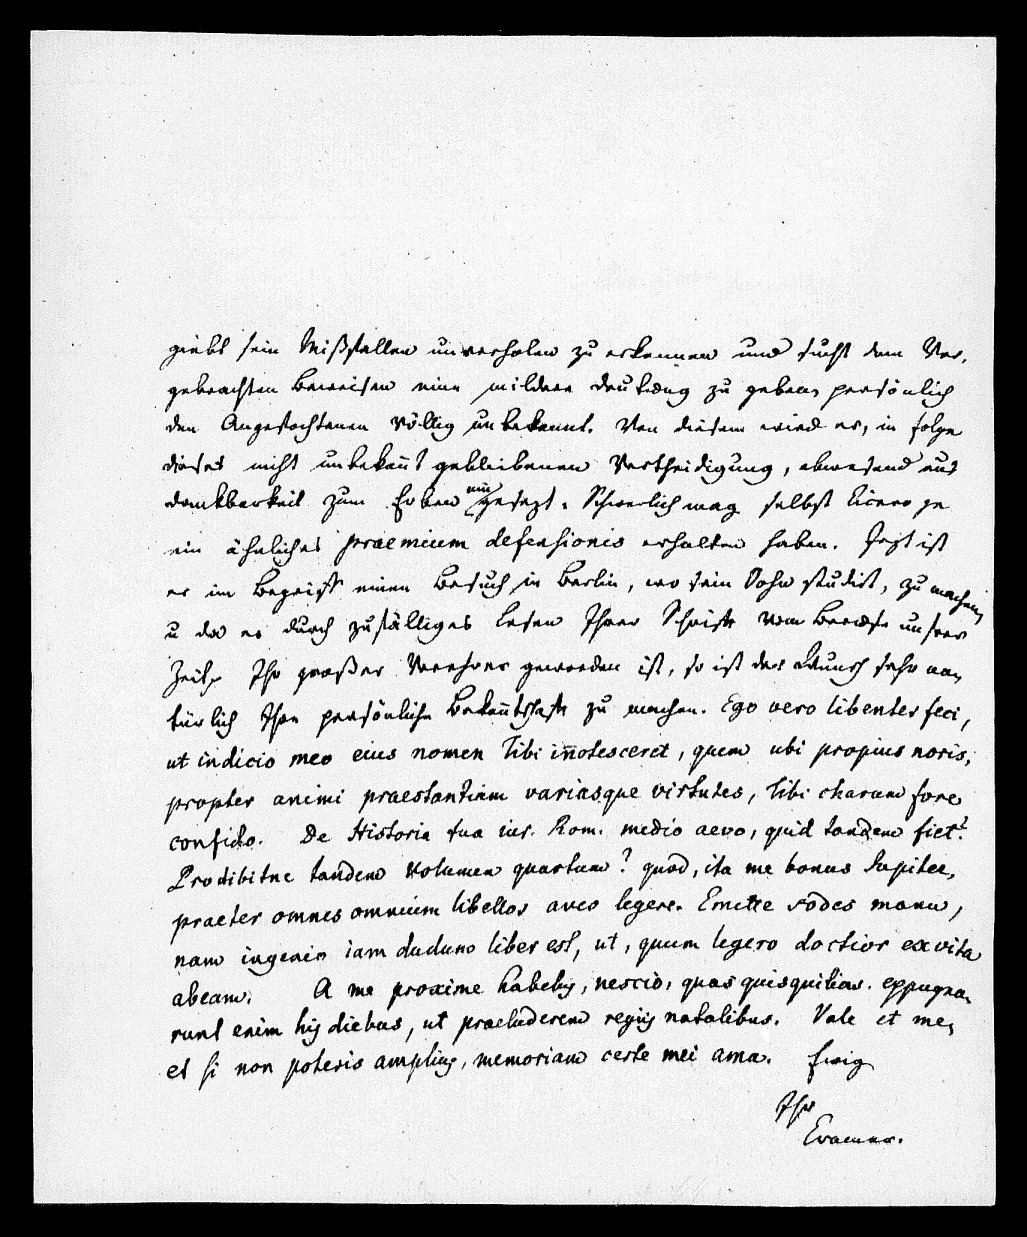 giebt sein Mißfallen unverholen zu erkennen und sucht den Vor-
gebrachten Beweisen eine mildere Deutung zu geben, persönlich
den Angefochtenen völlig unbekannt. Von diesem wird er, in folge
dieser nicht unbekañt gebliebenen Vertheidigung, abwesend aus
Dankbarkeit zum Erben eingesezt. Schwerlich mag selbst Cicero je
ein ähnliches praemium defensionis erhalten haben. Jezt ist
er im Begriff einen Besuch in Berlin, wo sein Sohn studirt, zu machen
u da er durch zufälliges Lesen Ihrer Schrift vom Berufe unsrer
Zeit Ihr großer Verehrer geworden ist, so ist der Wunsch sehr na-
türlich Ihre persönliche Bekañtschaft zu machen. Ego vero libenter feci,
ut indicio meo eius nomen Tibi iñotesceret, quem ubi propius noris,
propter animi praestantiam variasque virtutes, Tibi charum fore
confido. De Historia tua iur. Rom. medio aevo, quid tandem fiet?
Prodibitne tandem Volumen quartum? quod, ita me bonus Jupiter,
praeter omnes omnium libellos aveo legere. Emitte sodes manu,
nam ingenio iam dudum liber est, ut, quum legero doctior ex vita
abeam. A me proxime habebis, nescio, quas quisquilias. eppugna-
runt enim his diebus, ut praeluderem regiis natalibus. Vale et me,
et si non poteris amplius, memoriam certe mei ama. Ewig
Ihr
Cramer.